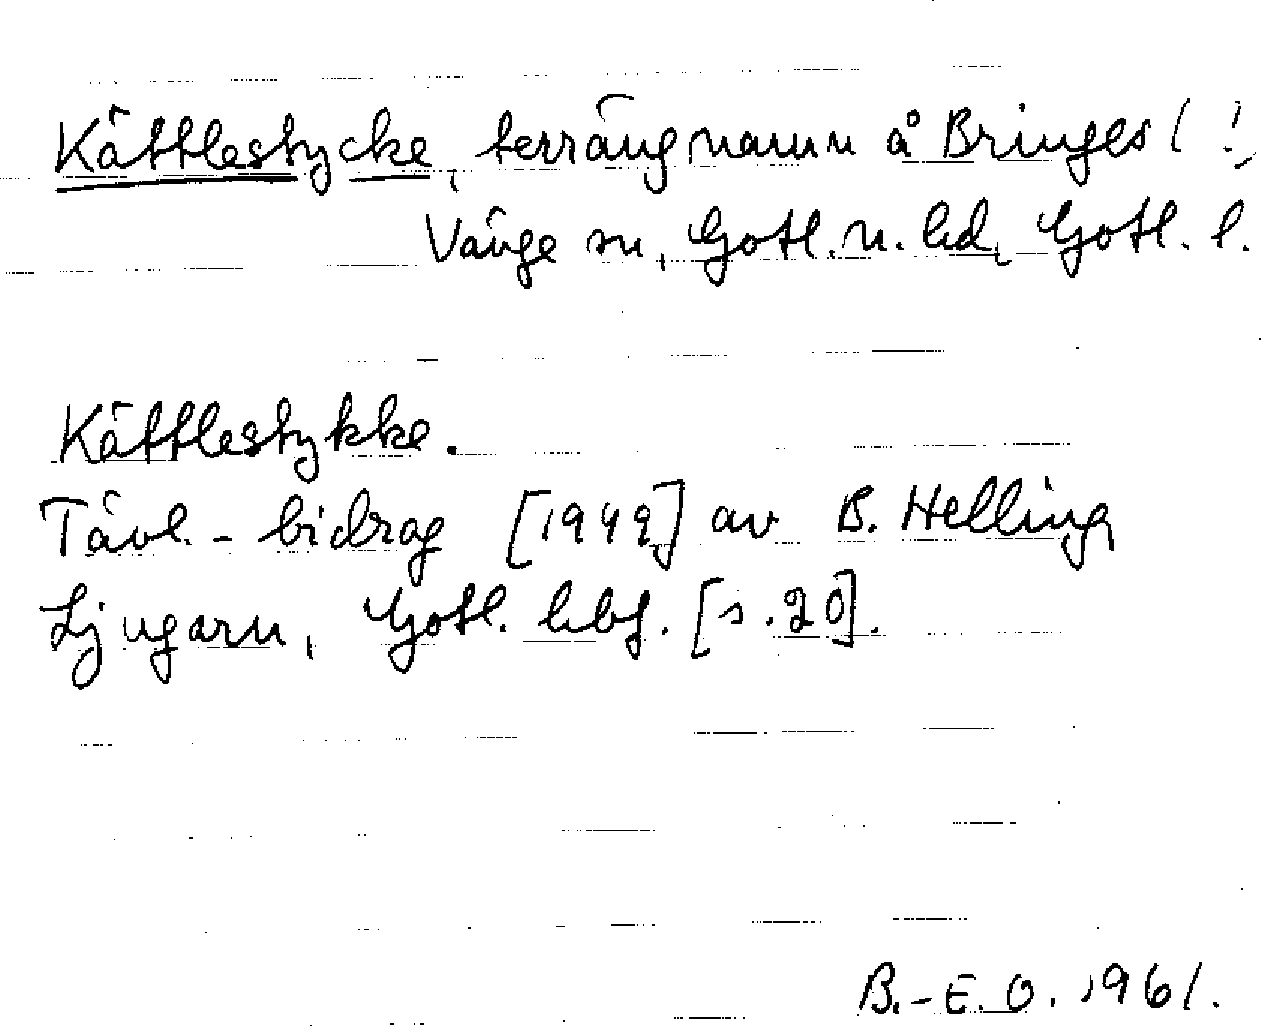 Kättlestycke, terrängnamn å Bringes (!,
Vänge sn, Gotl. n. hd, Gotl. l.
Kättlestykke.
Tävl.-bidrag [1949] av B. Helling,
Ljugarn, Gotl. hbf. [s. 20].
B.-E. O. 1961.